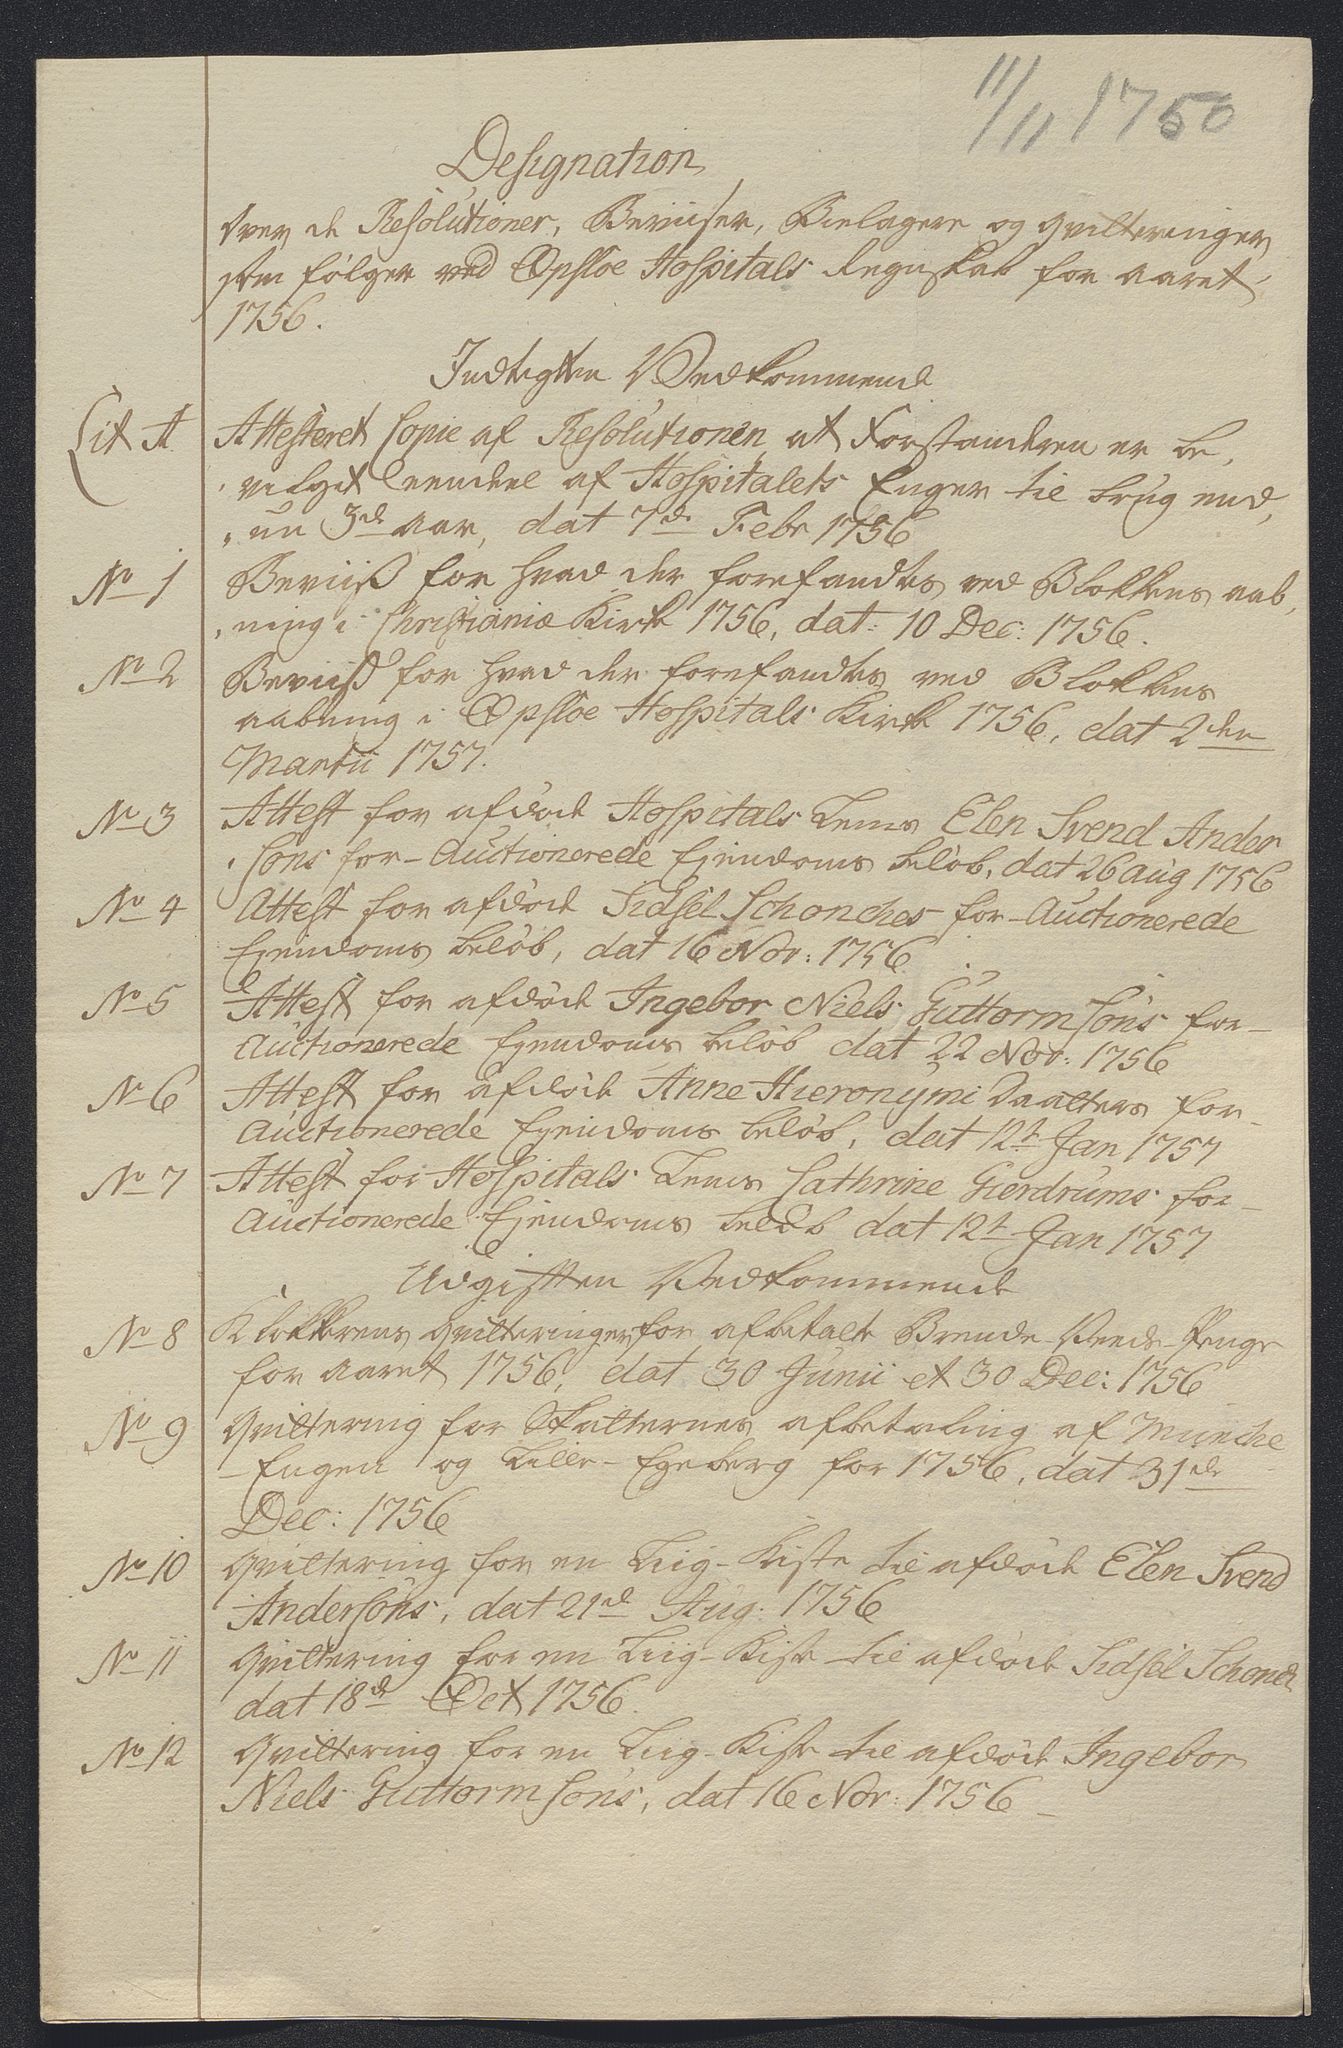 11/11 1750
Designation
Over de Resolutioner, Beviiser, Bielagere og qvitteringer
som følger ved Opsloe Hospitals Regnskab for aaret
1756.
Indtegten Vedkommende
Lit A Attesteret Copie af Resolutionen at Forstanderen er be,
vilget eendeel af Hospitalets Enger til brug end,
nu 3de Aar, dat 7de Febr 1756
No 1 Beviiß for hvad der forefandtes ved Blokkens aab,
ning i Christianiæ Kirke 1756, dat: 10 Dec: 1756.
No 2 Beviiß for hvad der forefandtes ved Blokkens
aabning i Opsloe Hospitals Kirke 1756, dat 2den
Martii 1757.
No 3 Attest for afdøde Hospitals Lems Elen Svend Ander
søns for-Auctionerede Ejendoms beløb, dat 26 aug 1756
No 4 Attest for afdøde Sidsel Schonches for-Auctionerede
Ejendoms beløb, dat 16 Nov: 1756.
No 5 Attest for afdøde Ingebor Niels Guttormsøns for-
Auctionerede Ejendoms beløb dat 22 Nov: 1756
No 6 Attest for afdøde Anne Hieronymi Vaalters for-
Auctionerede Ejendoms beløb, dat 12t Jan 1757
No 7 Attest for Hospitals Lems Cathrine Gierdrums for-
Auctionerede Ejendoms beløb dat 12t Jan 1757
Udgiften Vedkommende
No 8 Klokkerens qvitteringer for afbetalte Brende-Veeds-Penge
for aaret 1756, dat 30 Junii et 30 Dec: 1756
No 9 Qvittering for Skatternes afbetaling af Munche
-Engen og Lille-Egeberg for 1756, dat 31de
Dec: 1756
No 10 Qvittering for en Liig-Kiste til afdøde Elen Svend
Andersøns, dat 21de Aug: 1756
No 11 Qvittering for en Liig-Kiste til afdøde Sidsel Schonch
dat 18de Oct 1756.
No 12 Qvittering for en Liig-Kiste til afdøde Ingebor
Niels Guttormsøns, dat 16 Nov: 1756-